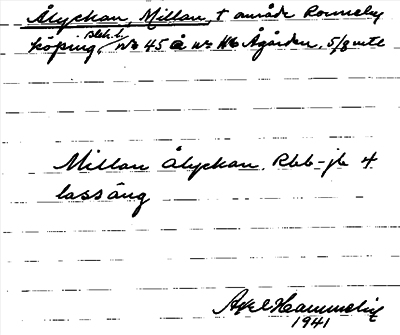 Ålyckan, Millan, t område Ronneby
köping, Blek. l. No 45 å No 116 Ågården. 5/8 mtl
Millan Ålyckan. Rbb-jb 4
lassäng
Axel Hammelin
1941